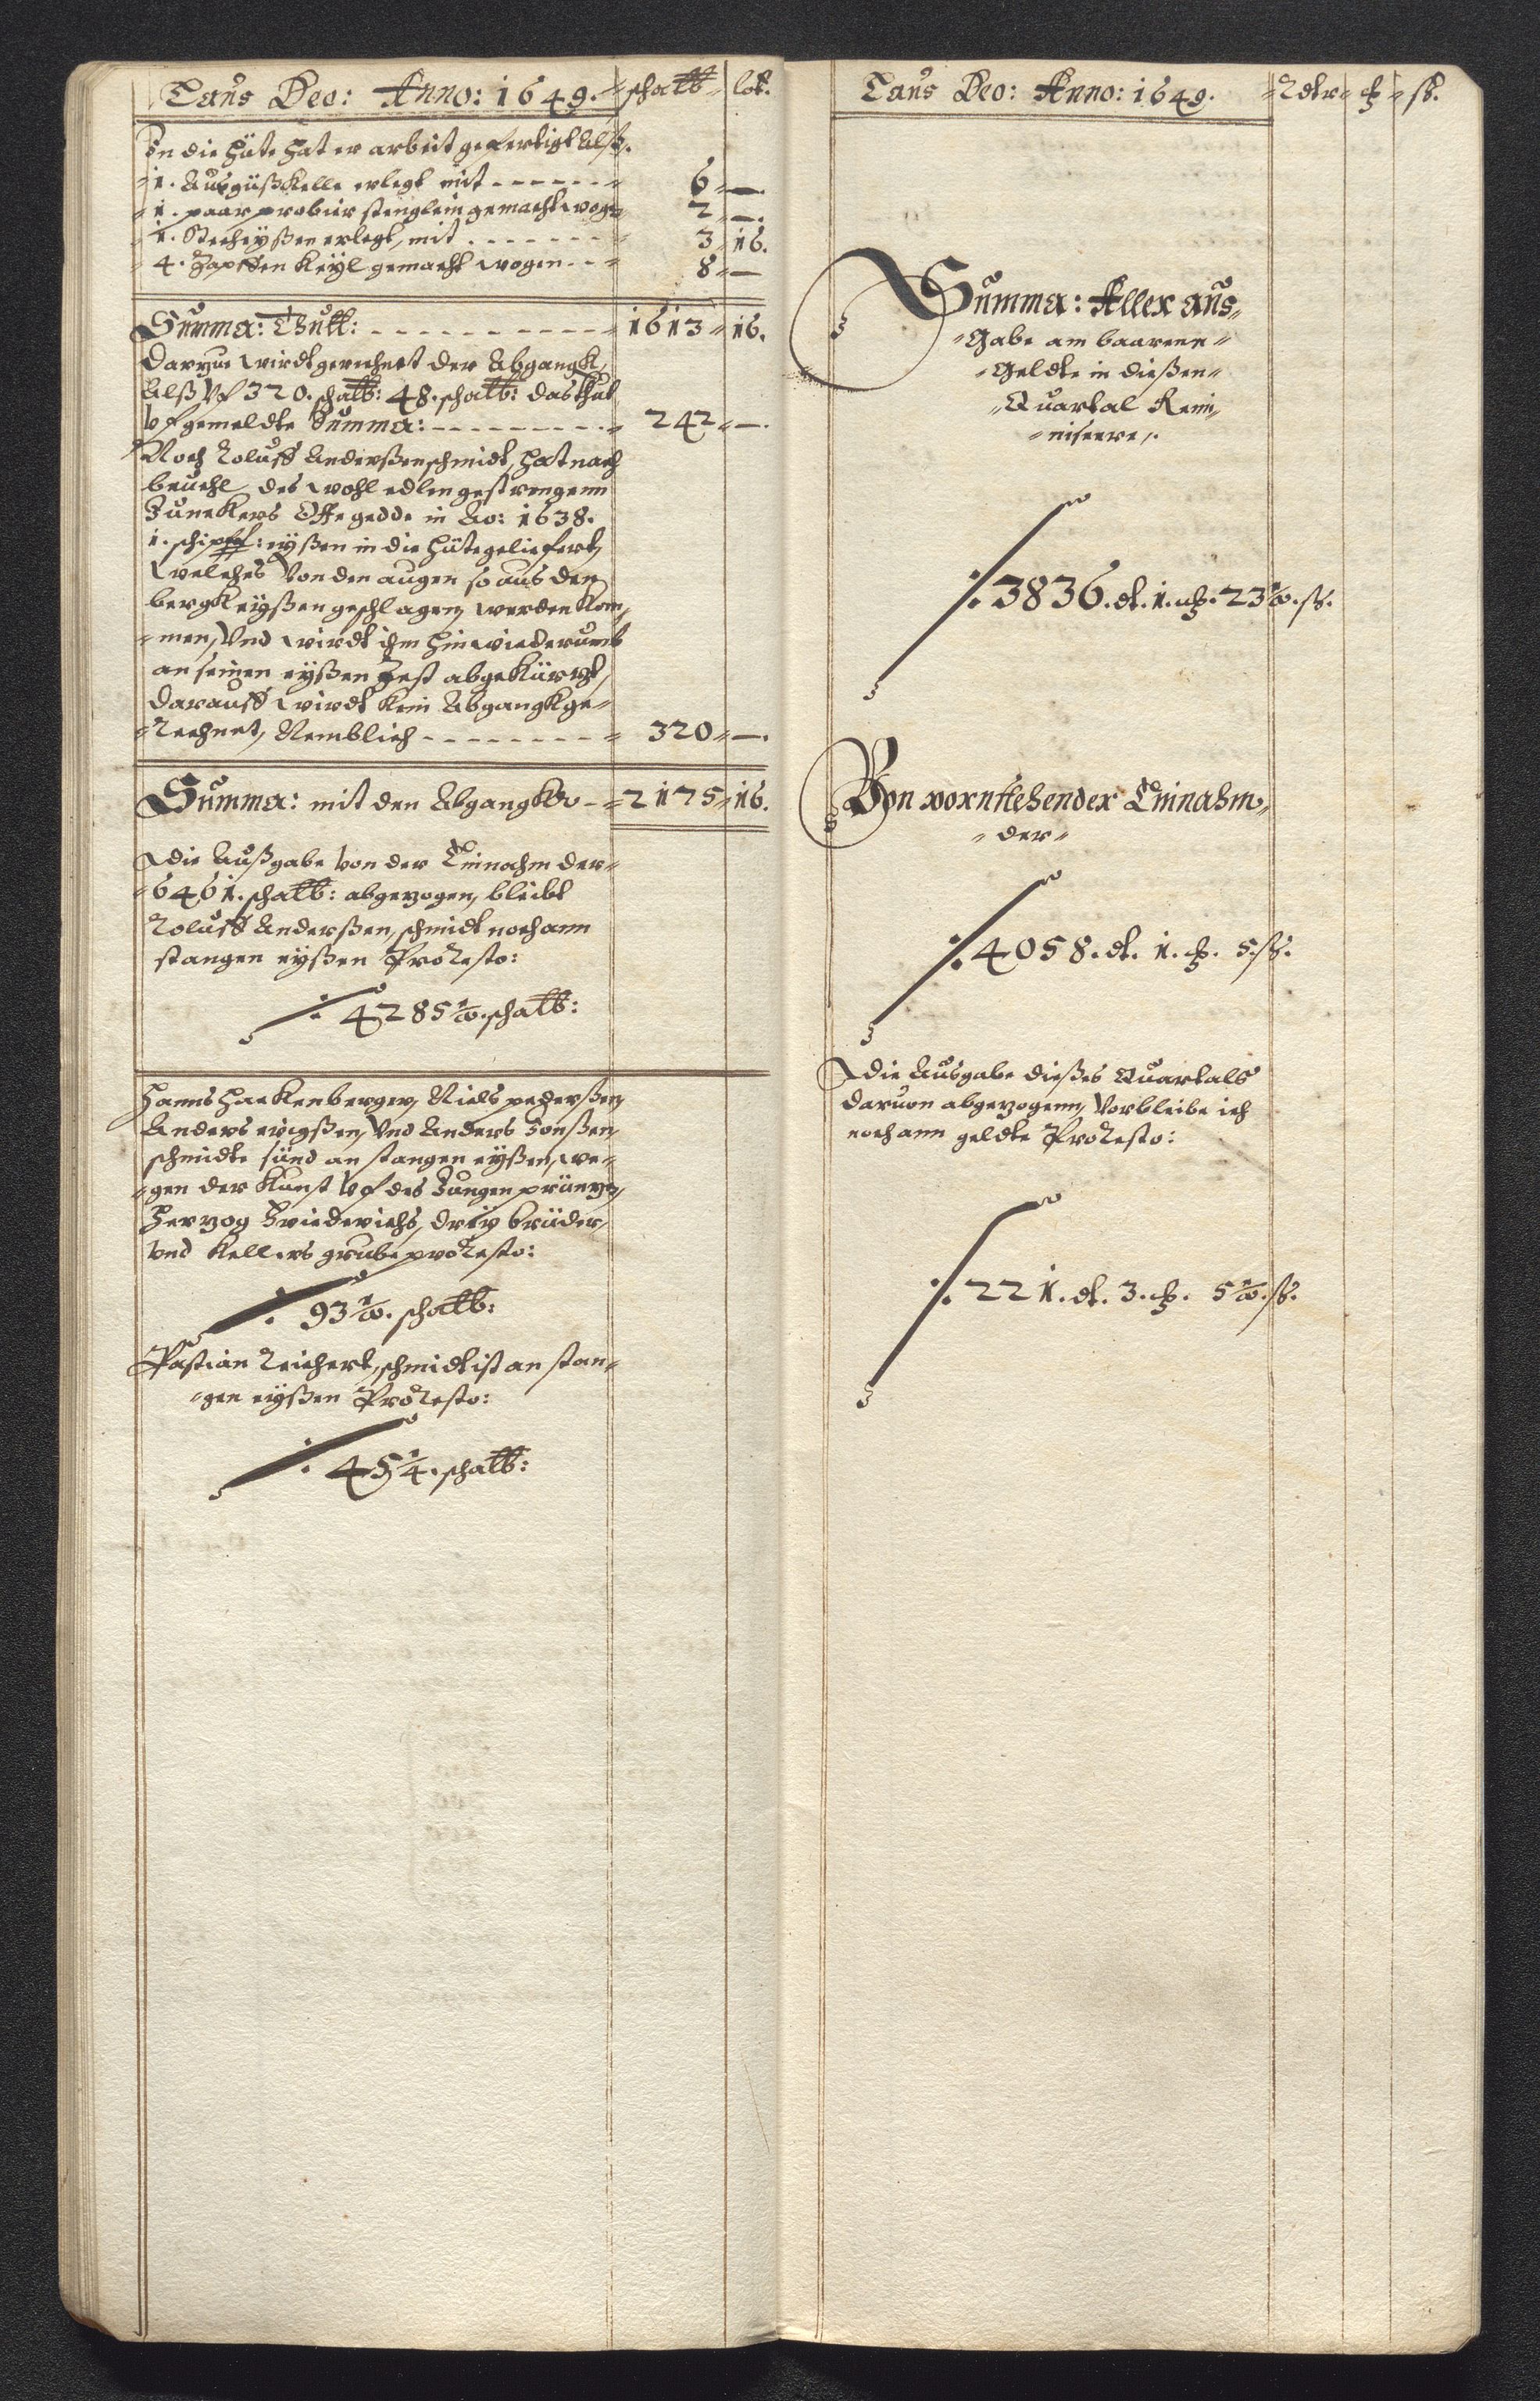 Laus Deo: Anno: 1649. schal℔ lot.
In die Hüte hat er arbeit gefertigt Alß.
1. Ausgüßkelle erlegt mit - - - - - - 6 —.
1. paar probier stenglein gemacht wog 2 —.
1. Stecheyßen erlegt, mit - - - - - - 3 16.
4. Zapffen Keyl gemacht wogen - - 8 —
Summa: Thutt: - - - - - - - - - - - 1613 16.
Darzue wirdt gerechnet der Abgangk,
Alß Vf 320. schal℔: 48. schal℔: das thut
vf gemeldte Summa: - - - - - - - - - 242 —.
Noch Roluff Anderßen schmidt, hat nach
beuehl des wohl edlen gestrengenn
Junckers Offe gedde in Ao: 1638.
1. schip℔: eyßen in die Hüte geliefert,
welches Von den augen so aus den
bergk eyßen geschlagen werden Kom,
men, Vnd wirdt ihm hinwiederumb
an seinen eyßen Rest abgekürtzt,
darauff wirdt kein Abgangk ge-
rechnet, Nemblich - - - - - - - - - 320 —.
Summa: mit den Abgangk - - 2175 16.
die Außgabe von der Einnahm der
6461. schal℔: abgezogen, bleibt
Roluff Anderßen, schmidt noch ann
stangen eyßen Pro Resto:
⁒ 4285 ½. schal℔:
Hanns Hackenberger, Niels pederßen,
Anders ericgßen, Vnd Anders Jonßen,
schmidte sünd an stangen eyßen, we-
gen der Kunst Vf des Jungen printzen,
Herzog Friederichs, drey brüder,
vnd Kellers grube pro Resto:
⁒ 93 ½. schal℔:
Pastian Reichert, schmidt ist an stan-
gen eyßen Pro Resto:
⁒ 45 ¼. schal℔:
Laus Deo: Anno: 1649. Rdtr ß.
Summa: Aller aus,
Gabe am baarenn
Geldte in dießen
Quartal Remi,
niscere,.
⁒ 3836. dt. 1. 23 ½. ß.
Von vornstehender Einnahm,
der
⁒ 4058. dt. 1. 5. ß.
die Ausgabe dießes Quartals
daruon abgezogenn, Vorbleibe ich
noch ann geldte Pro Resto:
⁒ 221. dt. 3. 5 ½. ß.